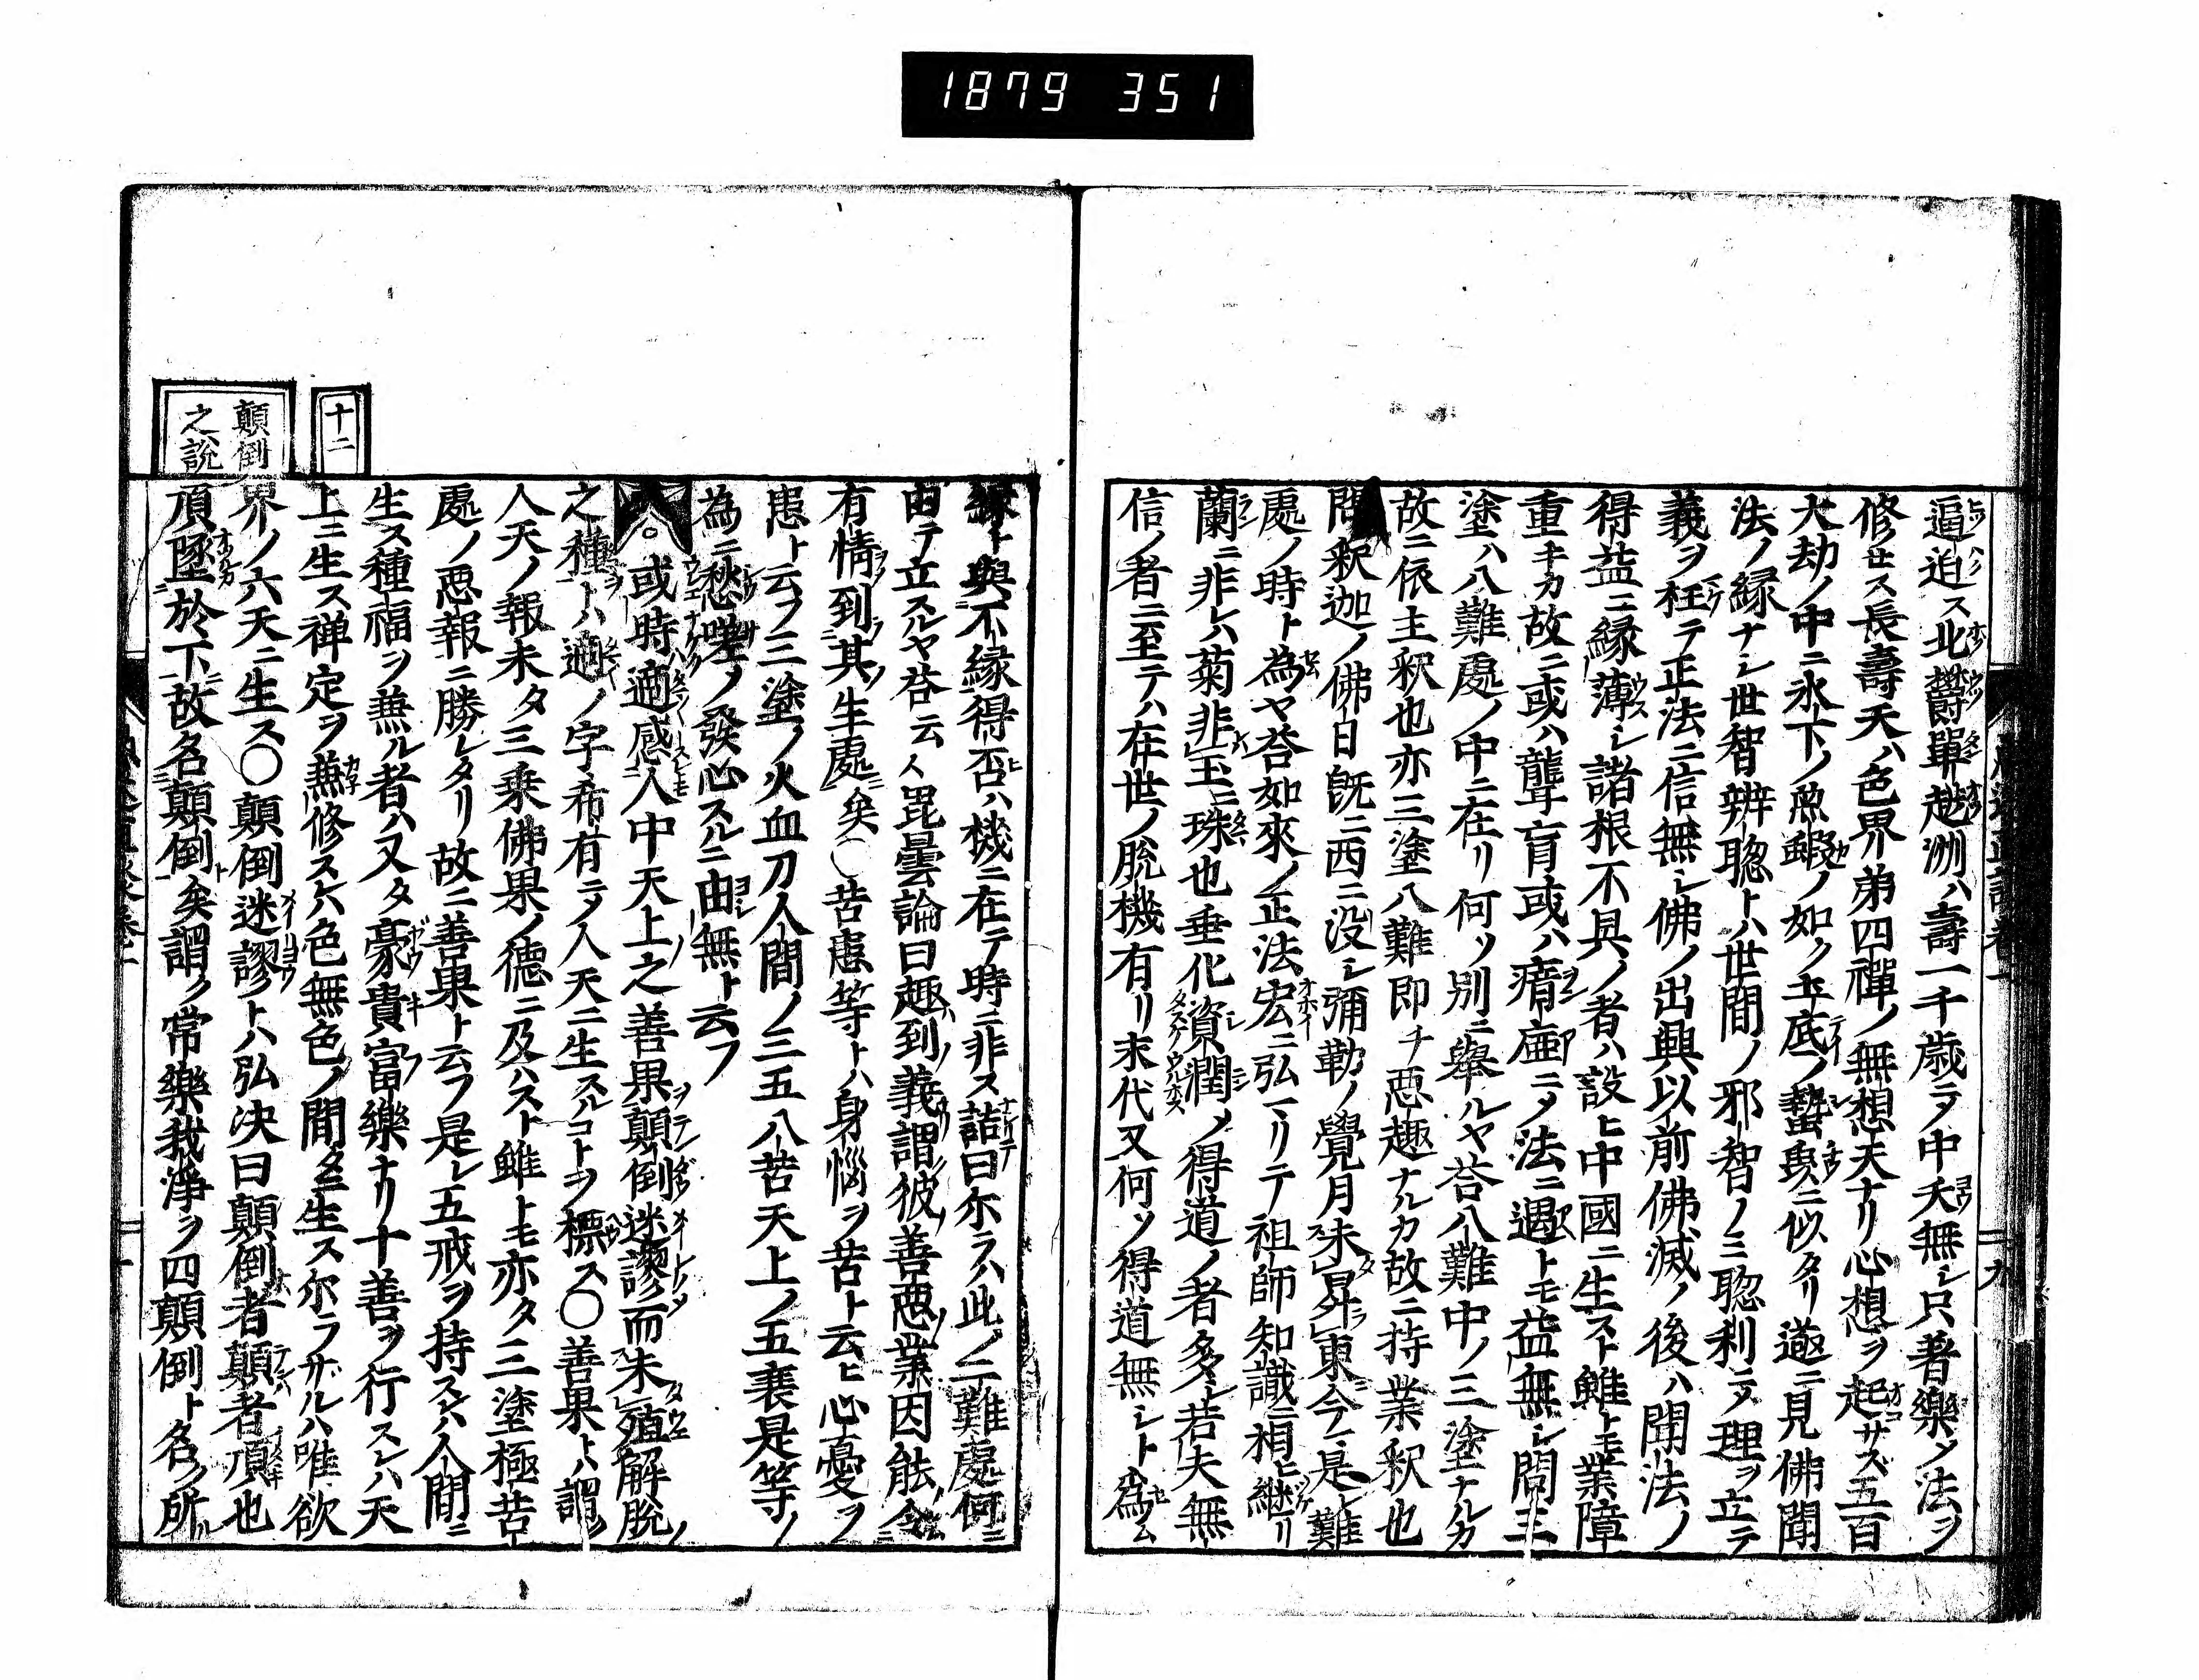 1879 351
逼迫ス北欝單越洲ハ壽一千歳ニ〆中夭無レ只著樂〆法ヲ
修セス長壽天ハ色界弟四禪ノ無想天ナリ心想ヲ起サス五百
大劫ノ中ニ氷下ノ魚鰕ノ如ク土底ノ蟄臾ニ似タリ遂ニ見佛聞
法ノ縁ナシ世智辨聡トハ世間ノ邪智ノミ聡利ニ〆理ヲ立テ
義ヲ枉テ正法ニ信無レ佛ノ出興以前佛滅ノ後ハ聞法ノ
得益ニ縁薄レ諸根不具ノ者ハ設ヒ中國ニ生スト雖トモ業障
重キカ故ニ或ハ聾盲或ハ瘖瘂ニ〆法ニ遇トモ益無レ問三
塗ハ八難處ノ中ニ在リ何ソ別ニ舉ルヤ荅八難中ノ三塗ナルカ
故ニ依主釈也亦三塗八難即チ惡趣ナルカ故ニ持業釈也
問釈迦ノ佛日既ニ西ニ没レ彌勒ノ覺月未昇東今是レ難
處ノ時ト為ヤ荅如來ノ正法宏ニ弘リテ祖師知識相ヒ継リ
蘭ニ非レハ菊非玉ニ珠也垂化資潤〆得道ノ者多シ若夫無
信ノ者ニ至テハ在世ノ脱機有リ末代又何ソ得道無レト為ム
縁ト與不縁得否ハ機ニ在テ時ニ非ス詰曰尓ラハ此ノ二難處何ニ
由テ立スルヤ荅云ク毘曇論曰趣到義謂彼善惡業因能令
有情到其生處矣〇苦患等トハ身惱ヲ苦ト云ヒ心憂ヲ
患ト云フ三塗ノ火血刀人間ノ三五八苦天上ノ五衰是等ノ
為ニ愁嗟ノ發心スルニ由無ト云フ
或時適感人中天上之善果顛倒迷謬而未殖解脱
之種トハ適ノ字希有ニ〆人天ニ生スルコトヲ標ス〇善果トハ謂
人天ノ報未タ三乗佛果ノ德ニ及ハスト雖トモ亦タ三塗極苦
處ノ惡報ニ勝レタリ故ニ善果ト云フ是レ五戒ヲ持スレハ人間ニ
生ス種福ヲ兼ル者ハ又タ豪貴富樂ナリ十善ヲ行スレハ天
上ニ生ス禅定ヲ兼修スレハ色無色ノ間タニ生ス尓ラサルハ唯欲
十二
界ノ六天ニ生ス〇顛倒迷謬トハ弘決曰顛倒者顛者頂也
顛倒
之説
頂墜於下故名顛倒矣謂ク常樂我淨ヲ四顛倒ト名ク所